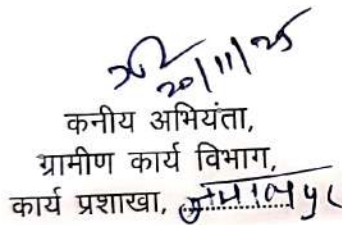 20/11/25
कनीय अभियंता,
ग्रामीण कार्य विभाग,
कार्य प्रशाखा,